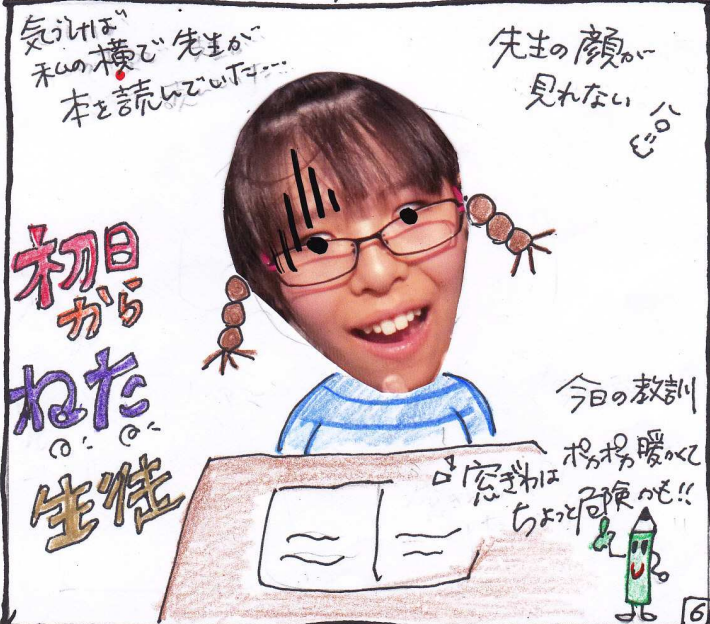 気づけば
私の横で先生が
本を読んでいた…
先生の顔が
見れない
初日
から
ねた
生徒
今日の教訓
『窓ぎわは
ポカポカ暖かくて
ちょっと危険かも!!
6